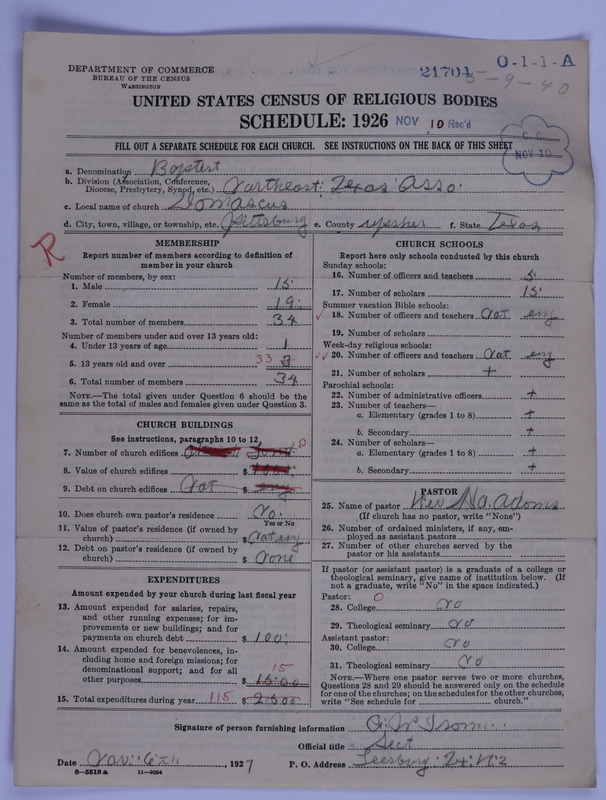 DEPARTMENT OF COMMERCE
BUREAU OF THE CENSUS
WASHINGTON
21701
0-1-1-A
5-9-40
UNITED STATES CENSUS OF RELIGIOUS BODIES
SCHEDULE: 1926 NOV 10 Rec'd
FILL OUT A SEPARATE SCHEDULE FOR EACH CHURCH. SEE INSTRUCTIONS ON THE BACK OF THIS SHEET
C. C.
NOV 10
a. Denomination Baptist
b. Division (Association, Conference, Diocese, Presbytery, Synod, etc.) Northeast Texas Asso.
c. Local name of church Domascus
d. City, town, village, or township, etc. Pittsburg e. County upsher f. State Texas
R
MEMBERSHIP
Report number of members according to definition of
member in your church
Number of members, by sex:
1. Male 15
2. Female 19
3. Total number of members 34
Number of members under and over 13 years old:
4. Under 13 years of age 1
5. 13 years old and over 33 3
6. Total number of members 34
NOTE.—The total given under Question 6 should be the
same as the total of males and females given under Question 3.
CHURCH BUILDINGS
See instructions, paragraphs 10 to 12
7. Number of church edifices 0
8. Value of church edifices $
9. Debt on church edifices Not $ any
10. Does church own pastor's residence No.
Yes or No
11. Value of pastor's residence (if owned by
church) $ Not any
12. Debt on pastor's residence (if owned by
church) $ None
EXPENDITURES
Amount expended by your church during last fiscal year
13. Amount expended for salaries, repairs,
and other running expenses; for im-
provements or new buildings; and for
payments on church debt $ 100:
14. Amount expended for benevolences, in-
cluding home and foreign missions; for
denominational support; and for all
other purposes $ 15 15.00
15. Total expenditures during year 115 $
CHURCH SCHOOLS
Report here only schools conducted by this church
Sunday schools:
16. Number of officers and teachers 5
17. Number of scholars 15
Summer vacation Bible schools:
18. Number of officers and teachers Not eny
19. Number of scholars
Week-day religious schools:
20. Number of officers and teachers Not eny
21. Number of scholars +
Parochial schools:
22. Number of administrative officers +
23. Number of teachers—
a. Elementary (grades 1 to 8) +
b. Secondary +
24. Number of scholars—
a. Elementary (grades 1 to 8) +
b. Secondary +
PASTOR
25. Name of pastor Adams
(If church has no pastor, write "None")
26. Number of ordained ministers, if any, em-
ployed as assistant pastors
27. Number of other churches served by the
pastor or his assistants
If pastor (or assistant pastor) is a graduate of a college or
theological seminary, give name of institution below. (If
not a graduate, write "No" in the space indicated.)
Pastor: 0
28. College No
29. Theological seminary No
Assistant pastor:
30. College No
31. Theological seminary No
NOTE.—Where one pastor serves two or more churches,
Questions 28 and 29 should be answered only on the schedule
for one of the churches; on the schedules for the other churches,
write "See schedule for church."
Signature of person furnishing information Isom
Official title Sect
Date Nov. 6th, 1927 P. O. Address Leesburg
8—5518 a 11—9054